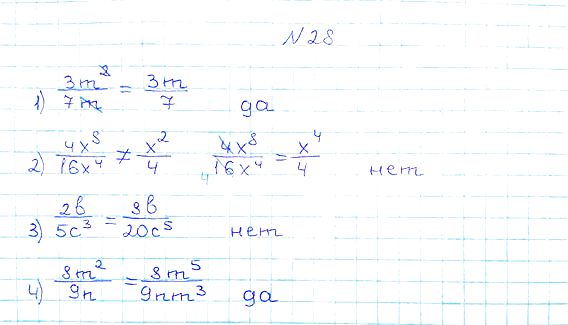 N 28
1) 3m²/7m = 3m/7 да
2) 4x⁸/16x⁴ ≠ x²/4 4x⁸/16x⁴ = x⁴/4 4 нет
3) 2b/5c³ = 8b/20c⁵ нет
4) 8m²/9n = 8m⁵/9nm³ да